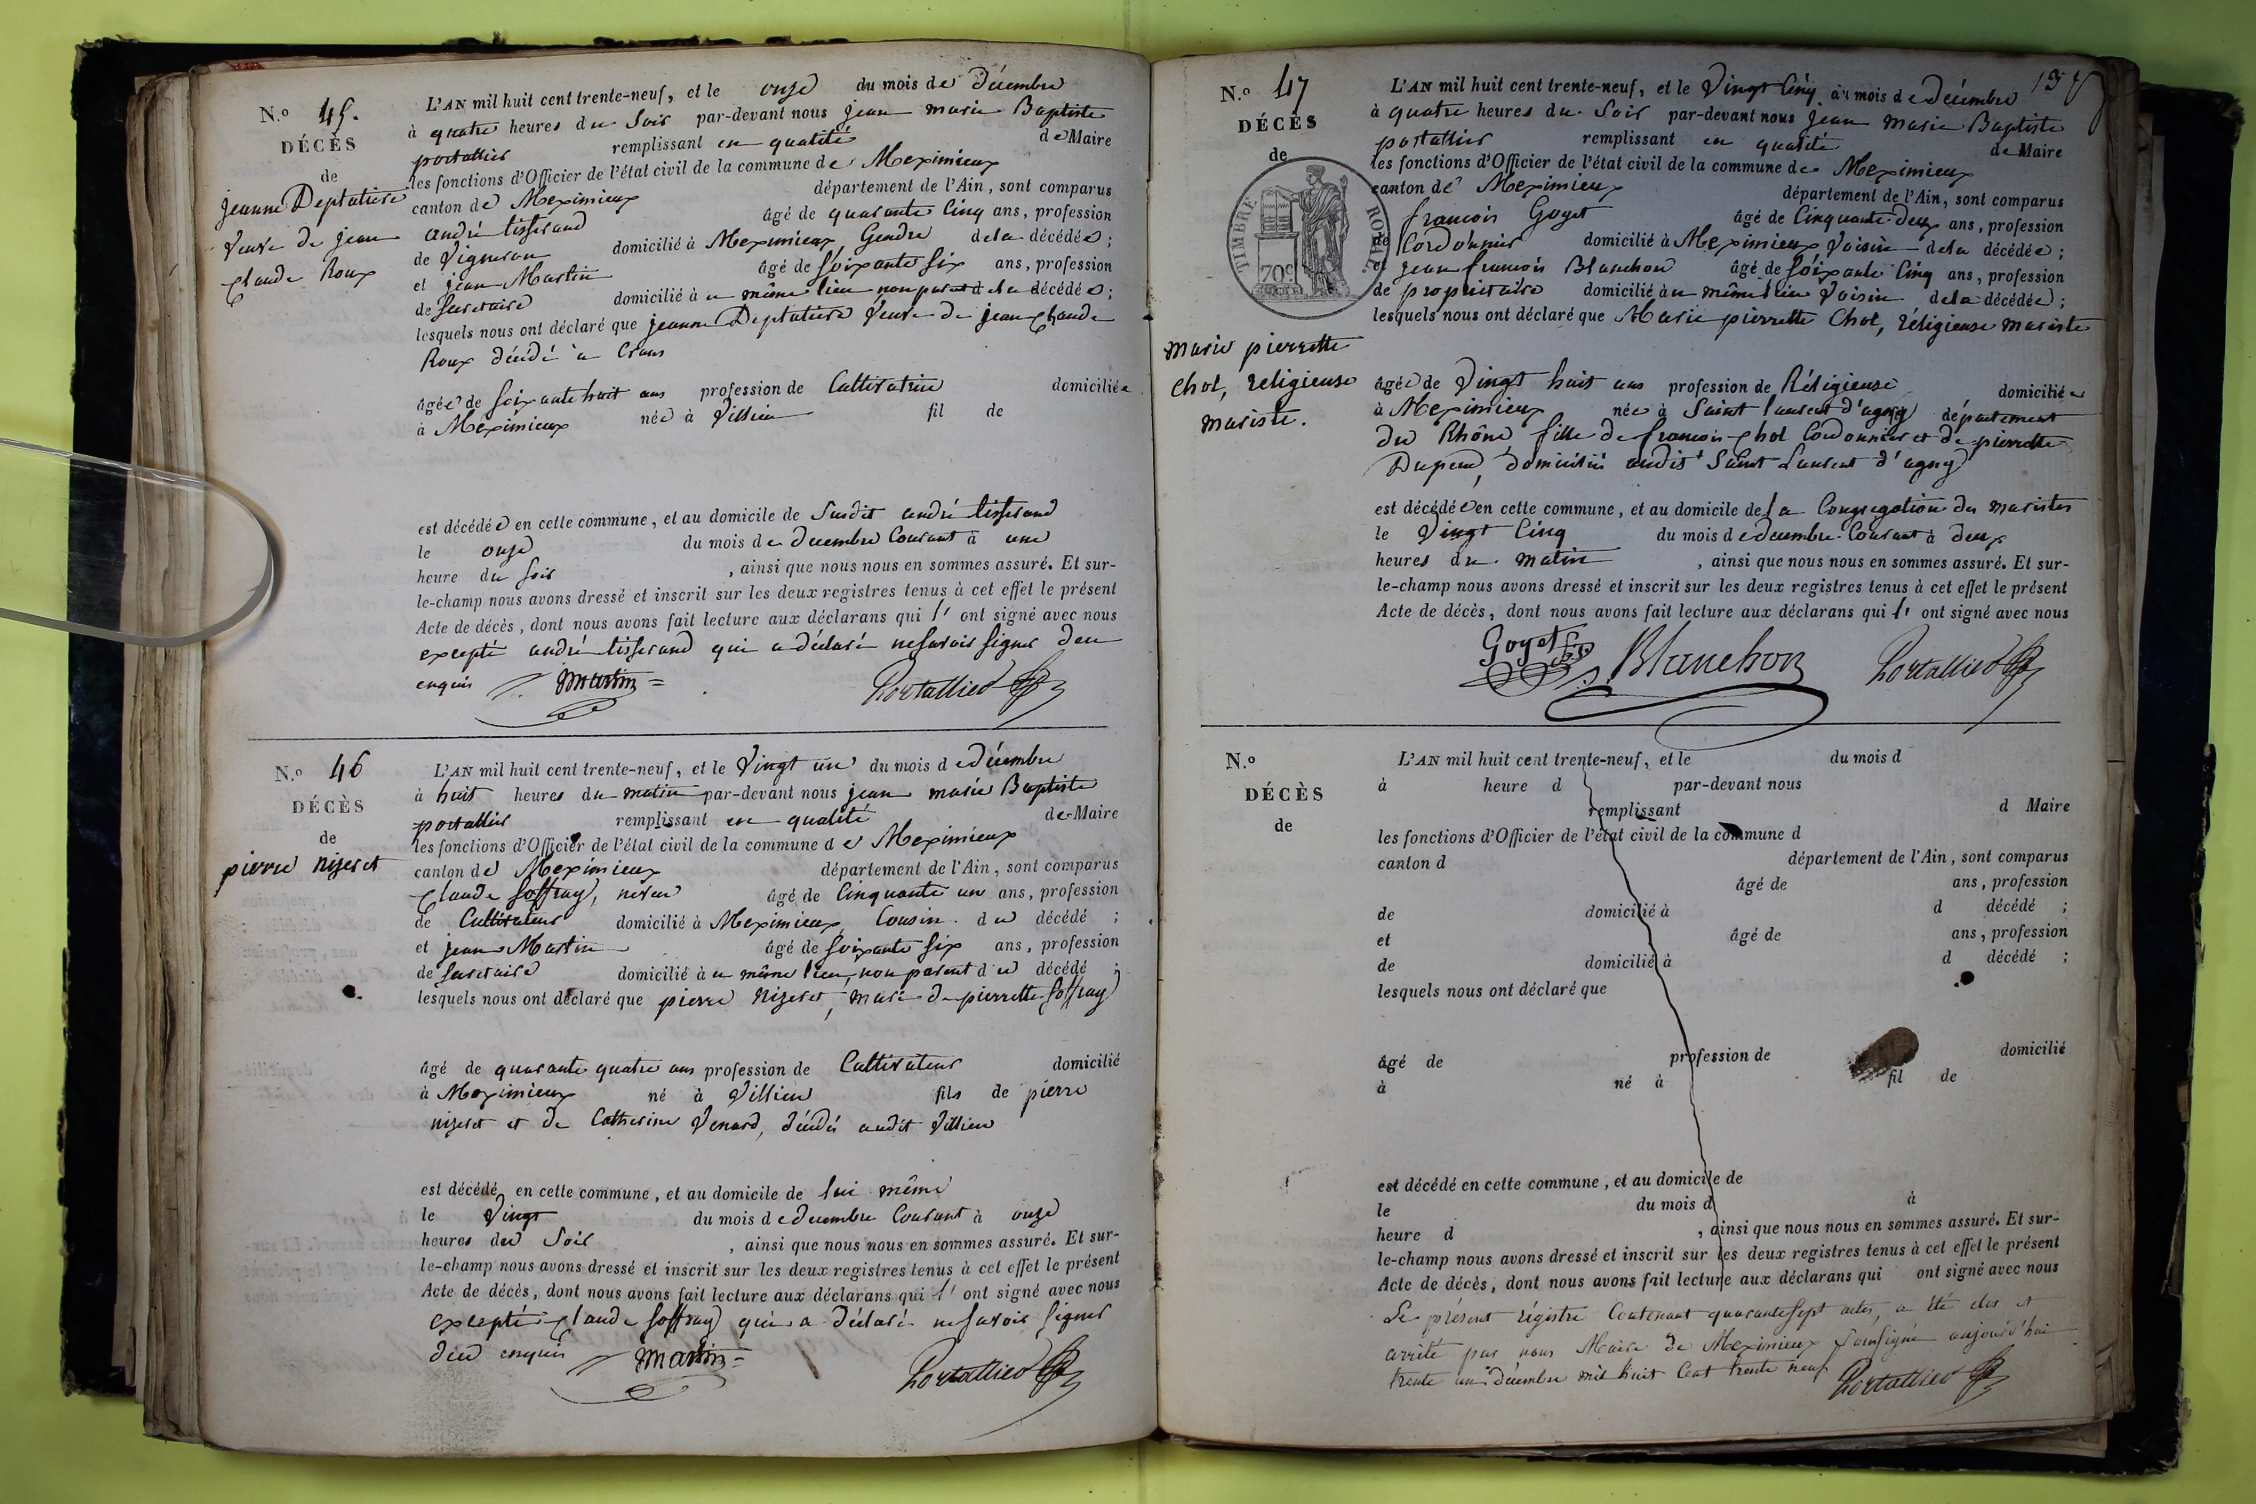 N.o 45.
DÉCÈS
de
jeanne Deplatière
veuve de jean
Claude Roux
L'AN mil huit cent trente-neuf, et le onze du mois de décembre
à quatre heures du soir par-devant nous jean marie Baptiste
portallier remplissant en qualité de Maire
les fonctions d'Officier de l'état civil de la commune de Meximieux
canton de Meximieux département de l'Ain, sont comparus
andré tisserand âgé de quarante cinq ans, profession
de Vigneron domicilié à Meximieux, Gendre de la décédée;
et jean Martin âgé de soixante six ans, profession
de secretaire domicilié à u même lieu non parent de la décédée;
lesquels nous ont déclaré que jeanne Deplatiere veuve de jean Claude
Roux décédé à Crans
âgée de soixante huit ans profession de Cultivatrice domiciliée
à Meximieux née à Villieu fil de
est décédée en cette commune, et au domicile de susdit andré tisserand
le onze du mois de decembre Courant à une
heure du soir, ainsi que nous nous en sommes assuré. Et sur-
le-champ nous avons dressé et inscrit sur les deux registres tenus à cet effet le présent
Acte de décès, dont nous avons fait lecture aux déclarans qui l' ont signé avec nous
excepté andré tisserand qui a déclaré ne savoir signer deu
enquis martin Portallier
N.o 46
DÉCÈS
de
pierre nizeret
L'AN mil huit cent trente-neuf, et le Vingt un du mois de décembre
à huit heures du matin par-devant nous jean marie Baptiste
portallier remplissant en qualité de Maire
les fonctions d'Officier de l'état civil de la commune de Meximieux
canton de Meximieux département de l'Ain, sont comparus
Claude soffray, neveu âgé de Cinquante un ans, profession
de Cultivateur domicilié à Meximieux Cousin du décédé;
et jean Martin âgé de soixante six ans, profession
de secretaire domicilié à u même lieu, non parent du décédé;
lesquels nous ont déclaré que pierre nizeret, mari de pierrette soffray
âgé de quarante quatre ans profession de Cultivateur domicilié
à Meximieux né à Villieu fils de pierre
nizeret et de Catherine Venard, décédés audit Villieu
est décédé en cette commune, et au domicile de lui même
le Vingt du mois de decembre Courant à onze
heures du soir, ainsi que nous nous en sommes assuré. Et sur-
le-champ nous avons dressé et inscrit sur les deux registres tenus à cet effet le présent
Acte de décès, dont nous avons fait lecture aux déclarans qui l' ont signé avec nous
excepté Claude soffray qui a déclaré ne savoir signer
deu enquis martin Portallier
N.o 47
DÉCÈS
de
TIMBRE ROYAL
70c
marie pierrette
Chol, religieuse
mariste.
L'AN mil huit cent trente-neuf, et le Vingt Cinq du mois de décembre
à quatre heures du soir par-devant nous jean marie Baptiste
portallier remplissant en qualité de Maire
les fonctions d'Officier de l'état civil de la commune de Meximieux
canton de Meximieux département de l'Ain, sont comparus
francois Goyet âgé de Cinquante deux ans, profession
de Cordonnier domicilié à Meximieux Voisin de la décédée;
et jean francois Blanchon âgé de soixante Cinq ans, profession
de propriétaire domicilié à u même lieu Voisin de la décédée;
lesquels nous ont déclaré que Marie pierrette Chol, réligieuse mariste
âgée de Vingt huit ans profession de Réligieuse domiciliée
à Meximieux née à Saint laurent d'agny département
du Rhône fille de francois Chol Cordonnier et de pierrette
domiciliés audit Saint Laurent d'agny
est décédée en cette commune, et au domicile de la Congregation des maristes
le Vingt Cinq du mois de decembre Courant à deux
heures du matin, ainsi que nous nous en sommes assuré. Et sur-
le-champ nous avons dressé et inscrit sur les deux registres tenus à cet effet le présent
Acte de décès, dont nous avons fait lecture aux déclarans qui l' ont signé avec nous
Goyet Blanchon Portallier
N.o
DÉCÈS
de
L'AN mil huit cent trente-neuf, et le du mois d
à heure d par-devant nous
remplissant d Maire
les fonctions d'Officier de l'état civil de la commune d
canton d département de l'Ain, sont comparus
âgé de ans, profession
de domicilié à d décédé;
et âgé de ans, profession
de domicilié à d décédé;
lesquels nous ont déclaré que
âgé de profession de domicilié
à né à fil de
est décédé en cette commune, et au domicile de
le du mois d à
heure d, ainsi que nous nous en sommes assuré. Et sur-
le-champ nous avons dressé et inscrit sur les deux registres tenus à cet effet le présent
Acte de décès, dont nous avons fait lecture aux déclarans qui ont signé avec nous
Le présent régistre Contenant quarante sept actes, a été clos et
arrêté par nous Maire de Meximieux soussigné aujourd'hui
trente un décembre mil huit Cent trente neuf Portallier